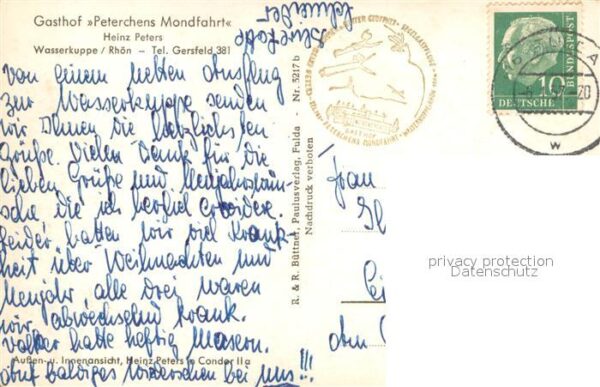 Gasthof »Peterchens Mondfahrt«
Heinz Peters
Wasserkuppe / Rhön – Tel. Gersfeld 381
Von einem netten Ausflug
zur Wasserkuppe senden
wir Ihnen die herzlichsten
Grüße. Vielen Dank für die
lieben Grüße und Neujahrswün-
sche die ich herzlich erwidere.
Leider hatten wir viel Krank-
heit über Weihnachten und
Neujahr alle drei waren
wir abwechselnd krank.
Walter hatte heftig Masern.
Außen- u. Innenansicht, Heinz Peters in Condor II a
Auf baldiges Wiedersehen bei uns!!!
R. & R. Büttner, Paulusverlag, Fulda · Nr. 5217 b
Nachdruck verboten
GASTHOF
PETERCHENS MONDFAHRT · WASSERKUPPE
DEUTSCHE
BUNDESPOST
10
w
Frau
privacy protection
Datenschutz